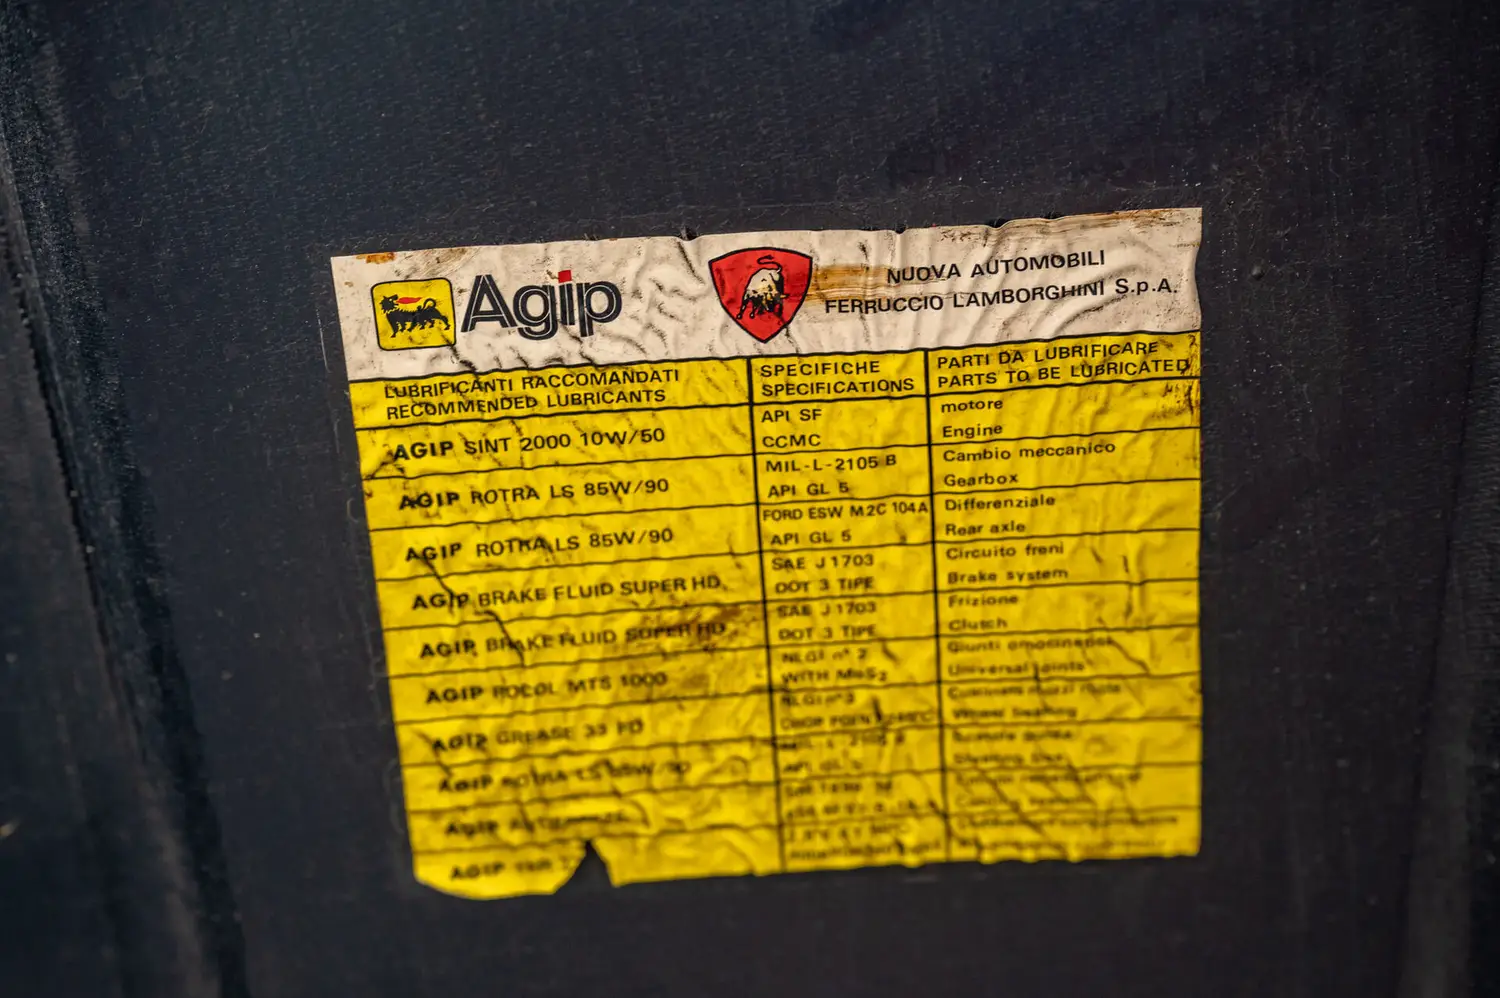 Agip
NUOVA AUTOMOBILI
FERRUCCIO LAMBORGHINI S.p.A.
LUBRIFICANTI RACCOMANDATI
RECOMMENDED LUBRICANTS
SPECIFICHE
SPECIFICATIONS
PARTI DA LUBRIFICARE
PARTS TO BE LUBRICATED
AGIP SINT 2000 10W/50
API SF
CCMC
motore
Engine
AGIP ROTRA LS 85W/90
MIL-L-2105 B
API GL 5
Cambio meccanico
Gearbox
AGIP ROTRA LS 85W/90
FORD ESW M2C 104A
API GL 5
Differenziale
Rear axle
AGIP BRAKE FLUID SUPER HD.
SAE J1703
DOT 3 TIPE
Circuito freni
Brake system
AGIP BRAKE FLUID SUPER HD.
SAE J1703
DOT 3 TIPE
Frizione
Clutch
AGIP ROCOL MTS 1000
NLGI n° 2
WITH MoS2
Giunti omocinetici
Universal joints
AGIP GREASE 33 FD
NLGI n° 3
Wheel bearing
AGIP ROTRA LS 85W/90
API GL 5
AGIP
AGIP